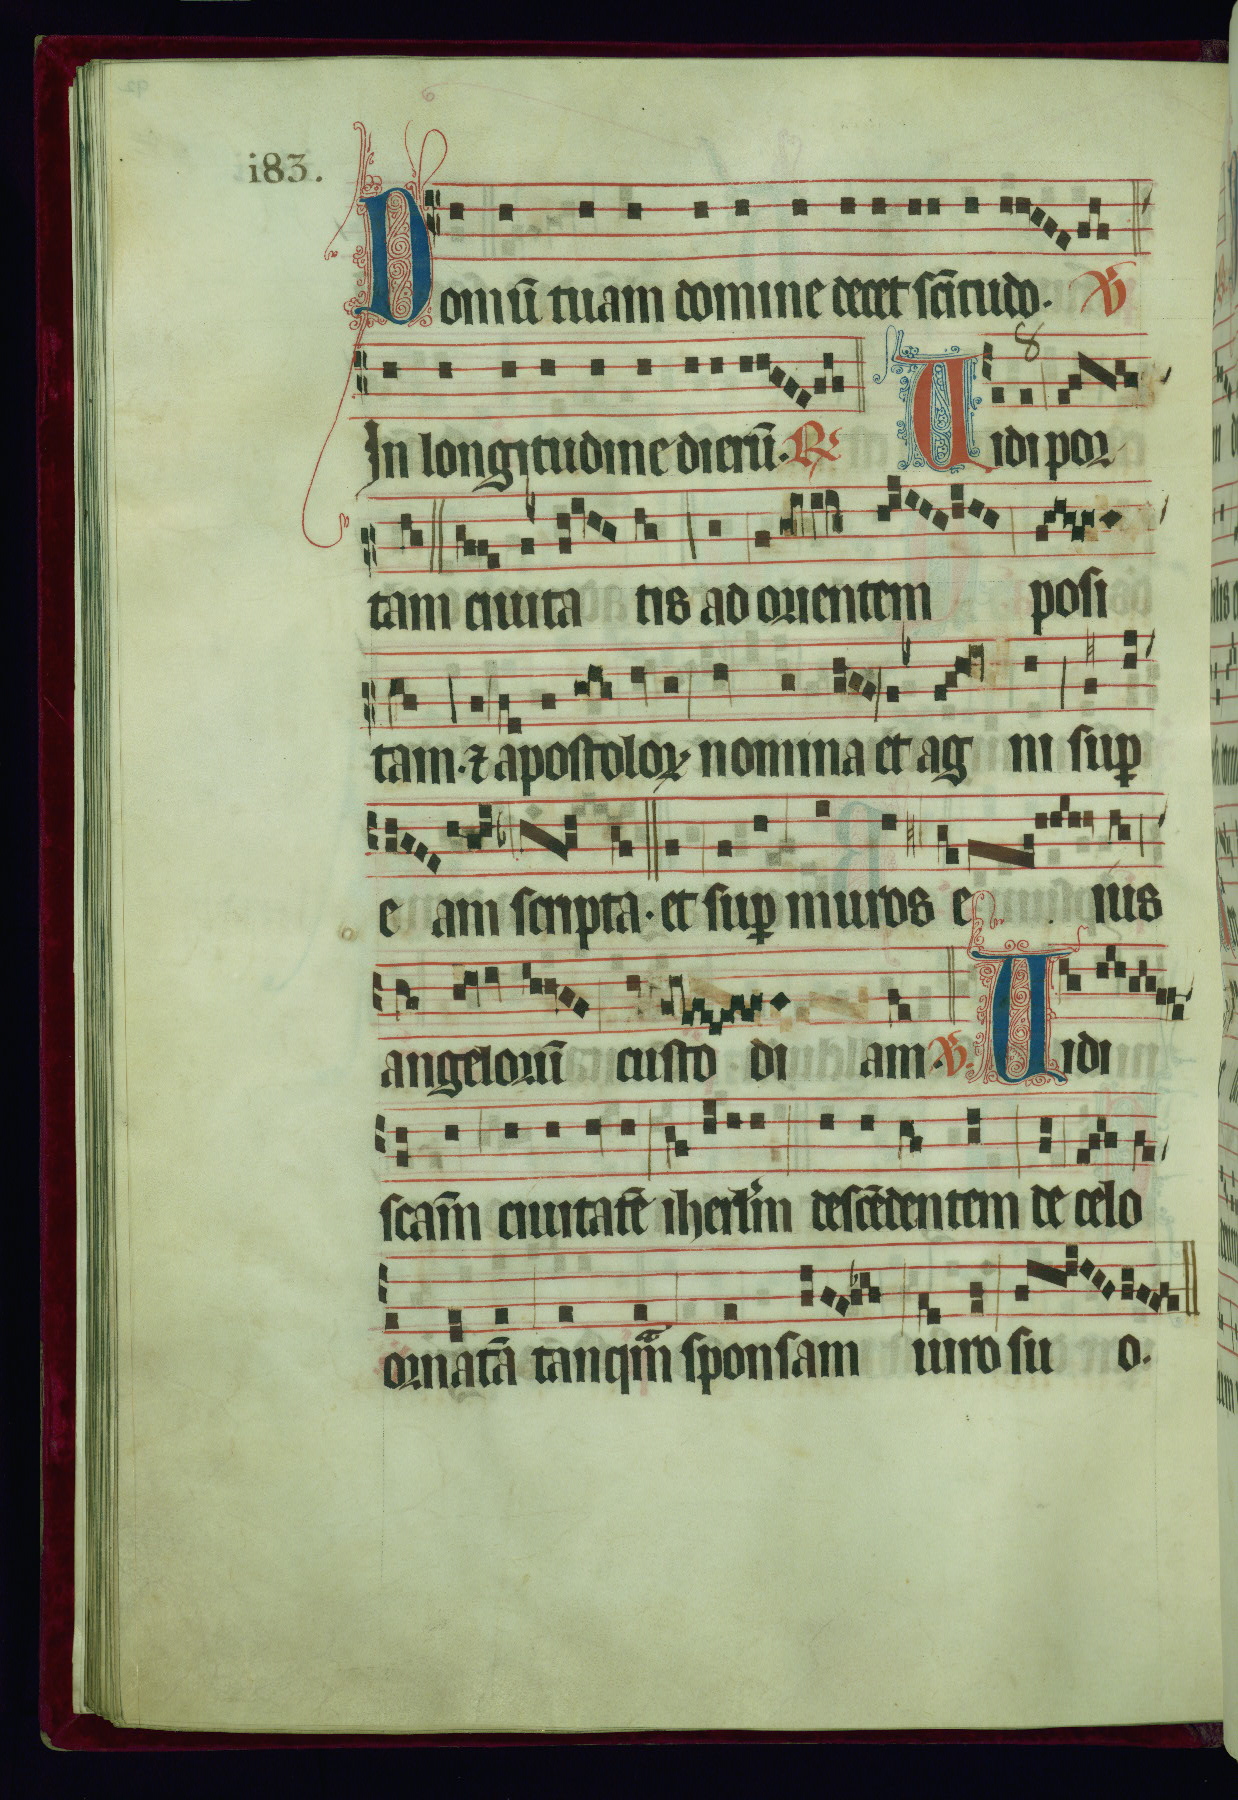 i83.
Domū tuam domine decet sc̄itudo. V
8
In longitudine dierū. R Uidi por
tam ciuita tis ad orientem posi
tam. ⁊ apostoloꝝ nomina et ag ni suꝑ
e am scripta. et suꝑ muros e ius
angeloꝝū custo di am. V. Uidi
scam̄ ciuitatē iherl'm descēdentem de celo
ornatā tanqm̄ sponsam uiro su o.